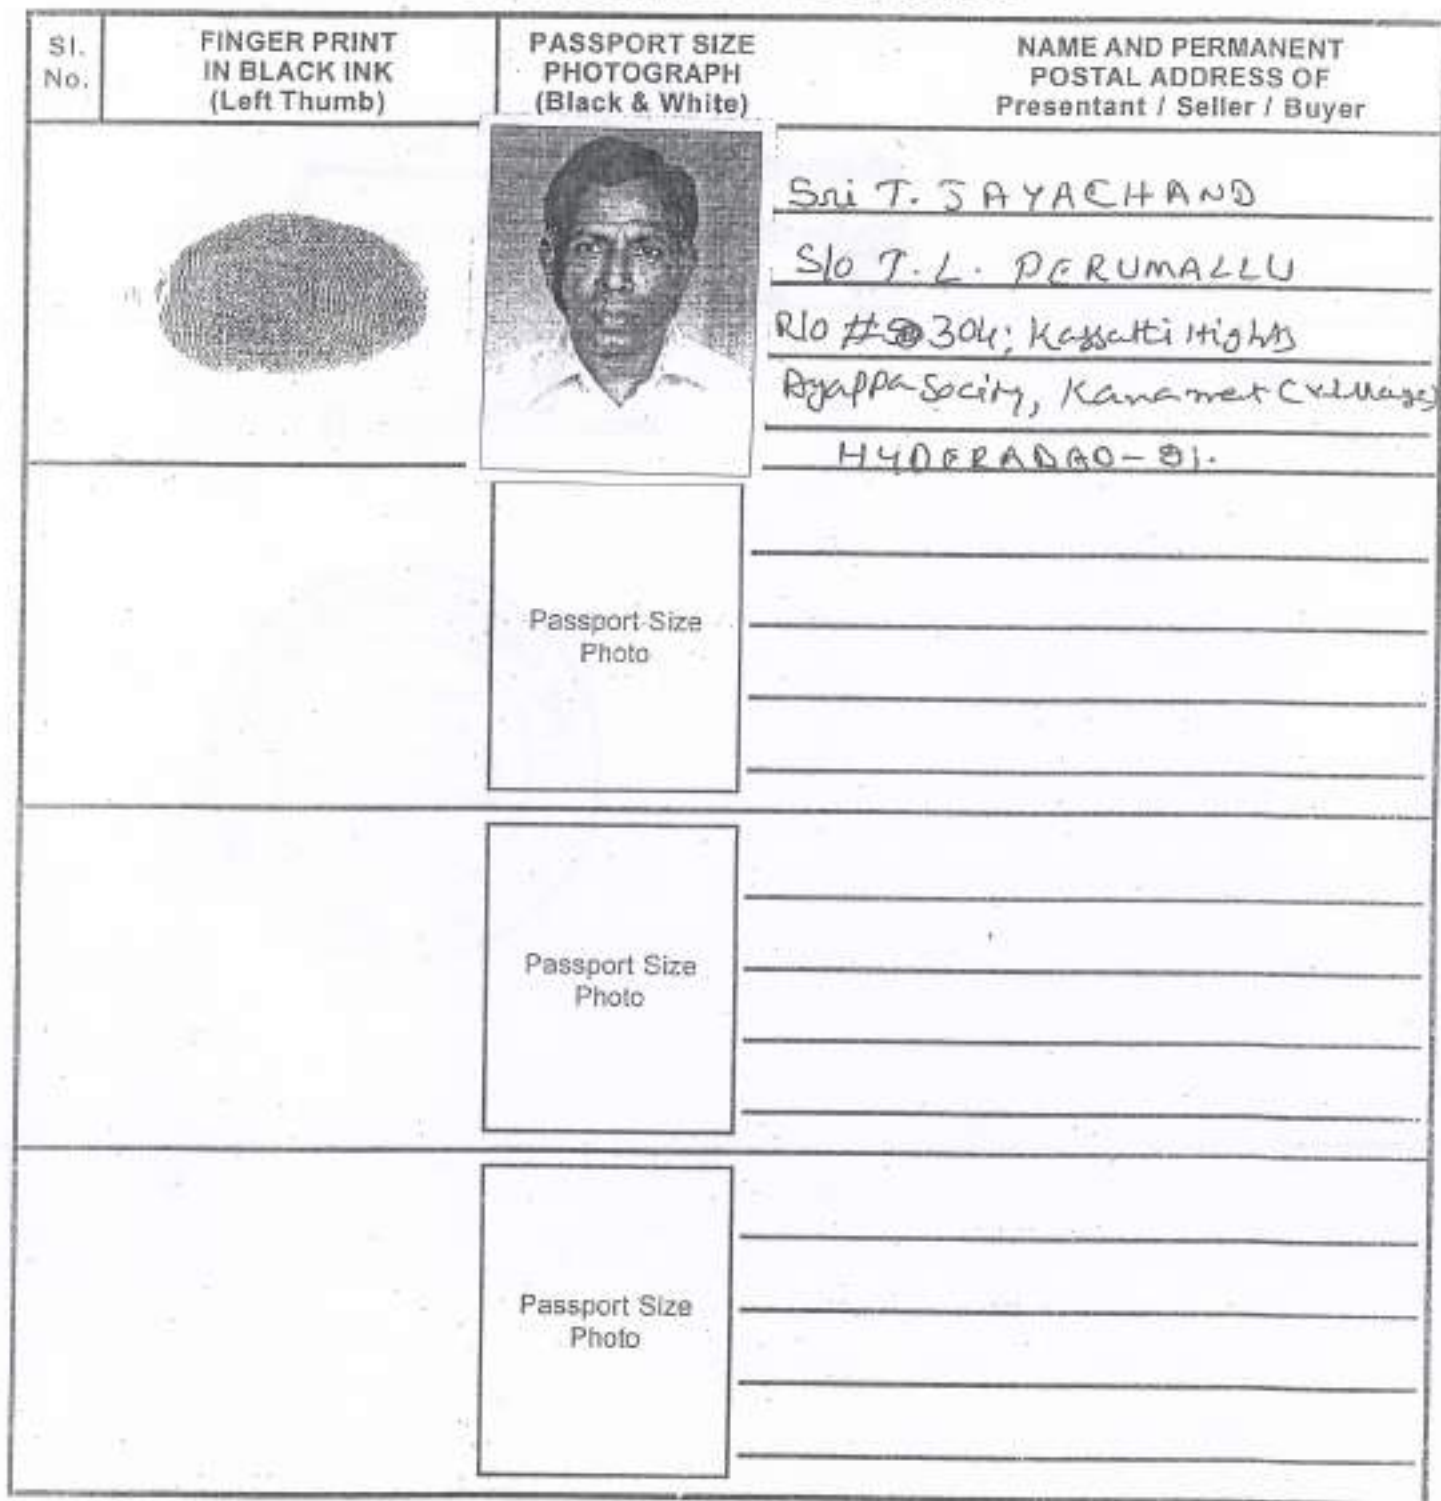 Sl.
No.
FINGER PRINT
IN BLACK INK
(Left Thumb)
PASSPORT SIZE
PHOTOGRAPH
(Black & White)
NAME AND PERMANENT
POSTAL ADDRESS OF
Presentant / Seller / Buyer
Sri T. JAYACHAND
S/o T.L. PERUMALLU
R/o # 304; Hights
Ayappa Socity, Kanamet (village)
HYDERABAD - 81.
Passport Size
Photo
Passport Size
Photo
Passport Size
Photo